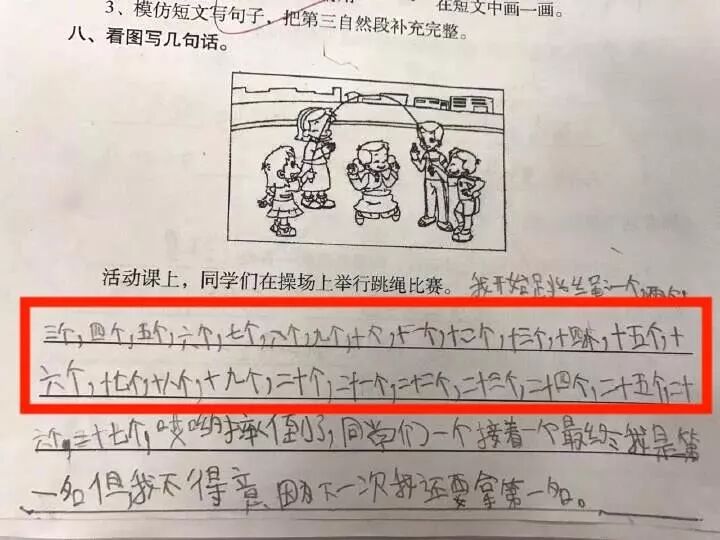 在短文中画一画。
3、模仿短文写句子，把第三自然段补充完整。
八、看图写几句话。
活动课上，同学们在操场上举行跳绳比赛。我开始跳绳一个，两个，
三个，四个，五个，六个，七个，八个，九个，十个，十一个，十二个，十三个，十四个，十五个，十
六个，十七个，十八个，十九个，二十个，二十一个，二十二个，二十三个，二十四个，二十五个，二十
六个，二十七个，哎哟摔倒了，同学们一个接着一个最终我是第
一名但我不得意因为下一次我还要拿第一名。